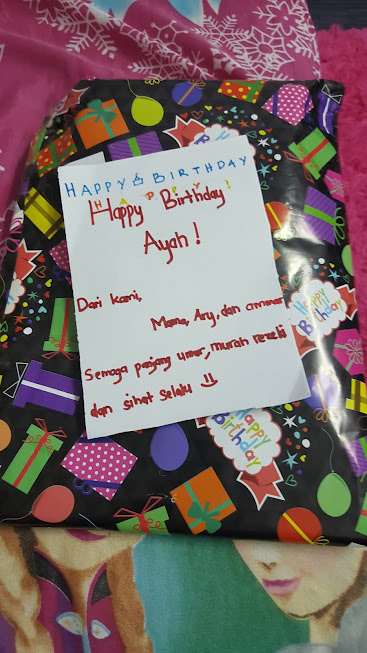 HAPPY BIRTHDAY
HAPPY
Happy Birthday!
Ayah!
Dari kami,
Mama, Ary, dan ammar
Semoga panjang umur, murah rezeki
dan sihat selalu
Happy
Birthday
Happy
Birthday